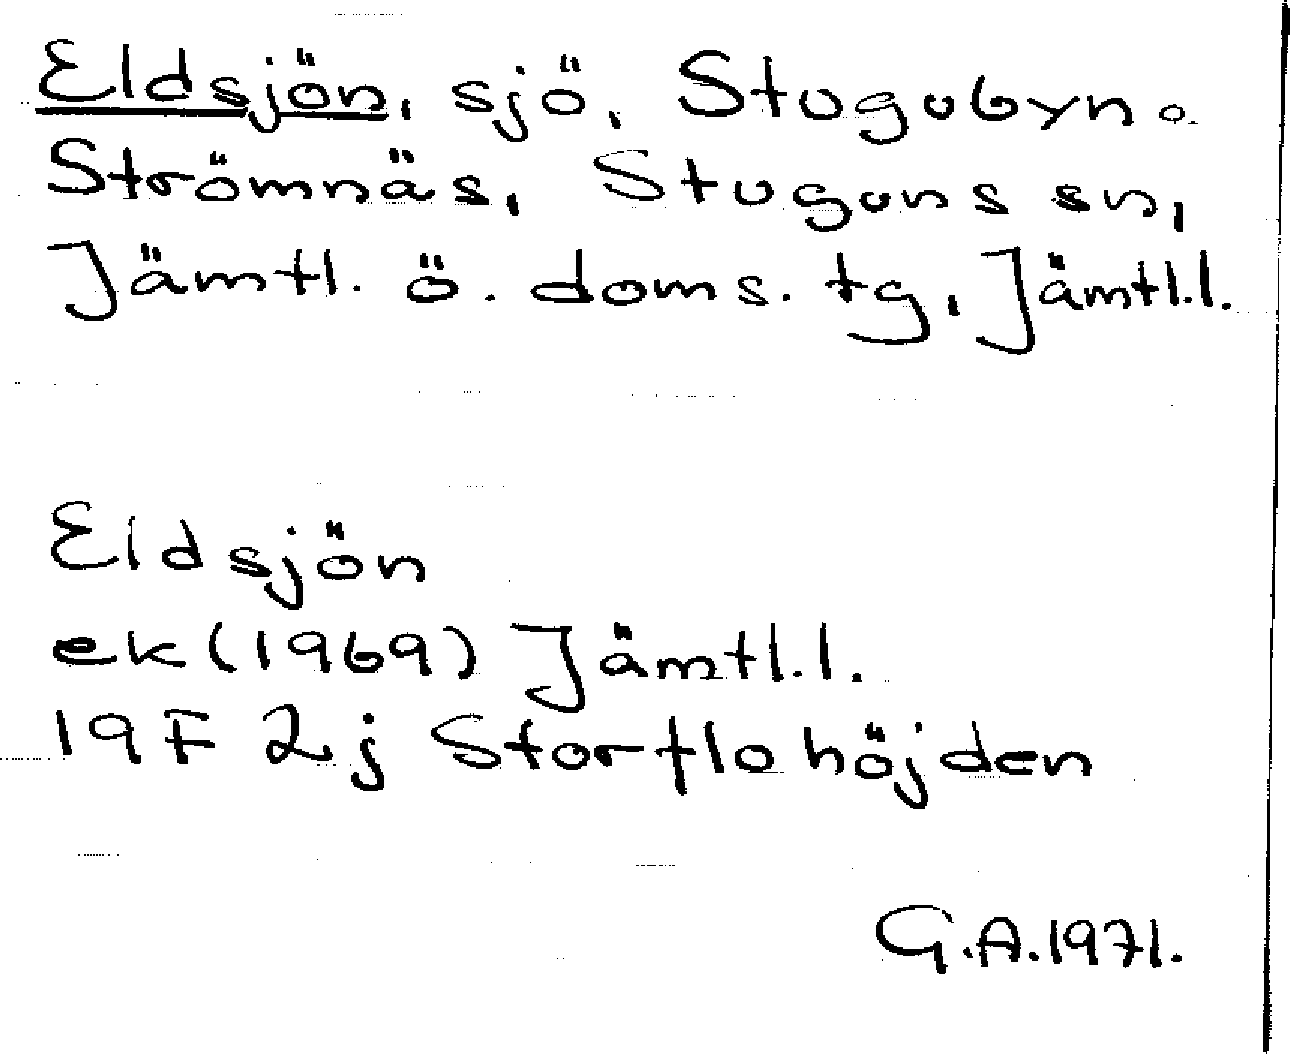 Eldsjön, sjö, Stugubyn o.
Strömnäs, Stuguns sn,
Jämtl. ö. doms. tg, Jämtl.l.
Eldsjön
ek (1969) Jämtl.l.
19F 2j Storflohöjden
G.A. 1971.